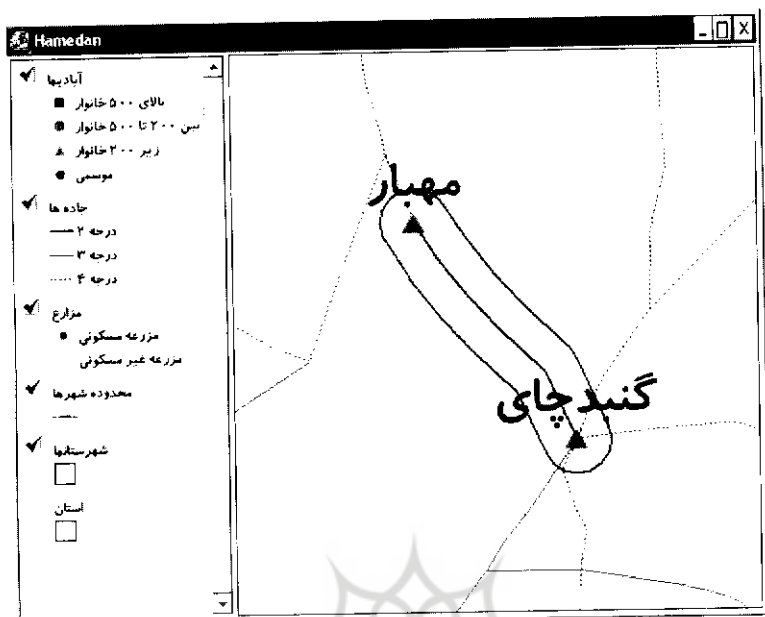 Hamedan
آبادیها
بالای ۵۰۰ خانوار
بین ۲۰۰ تا ۵۰۰ خانوار
زیر ۲۰۰ خانوار
موسمی
جاده ها
درجه ۲
درجه ۳
درجه ۴
مزارع
مزرعه مسکونی
مزرعه غیر مسکونی
محدوده شهرها
شهرستانها
استان
مهبار
گنبد چای